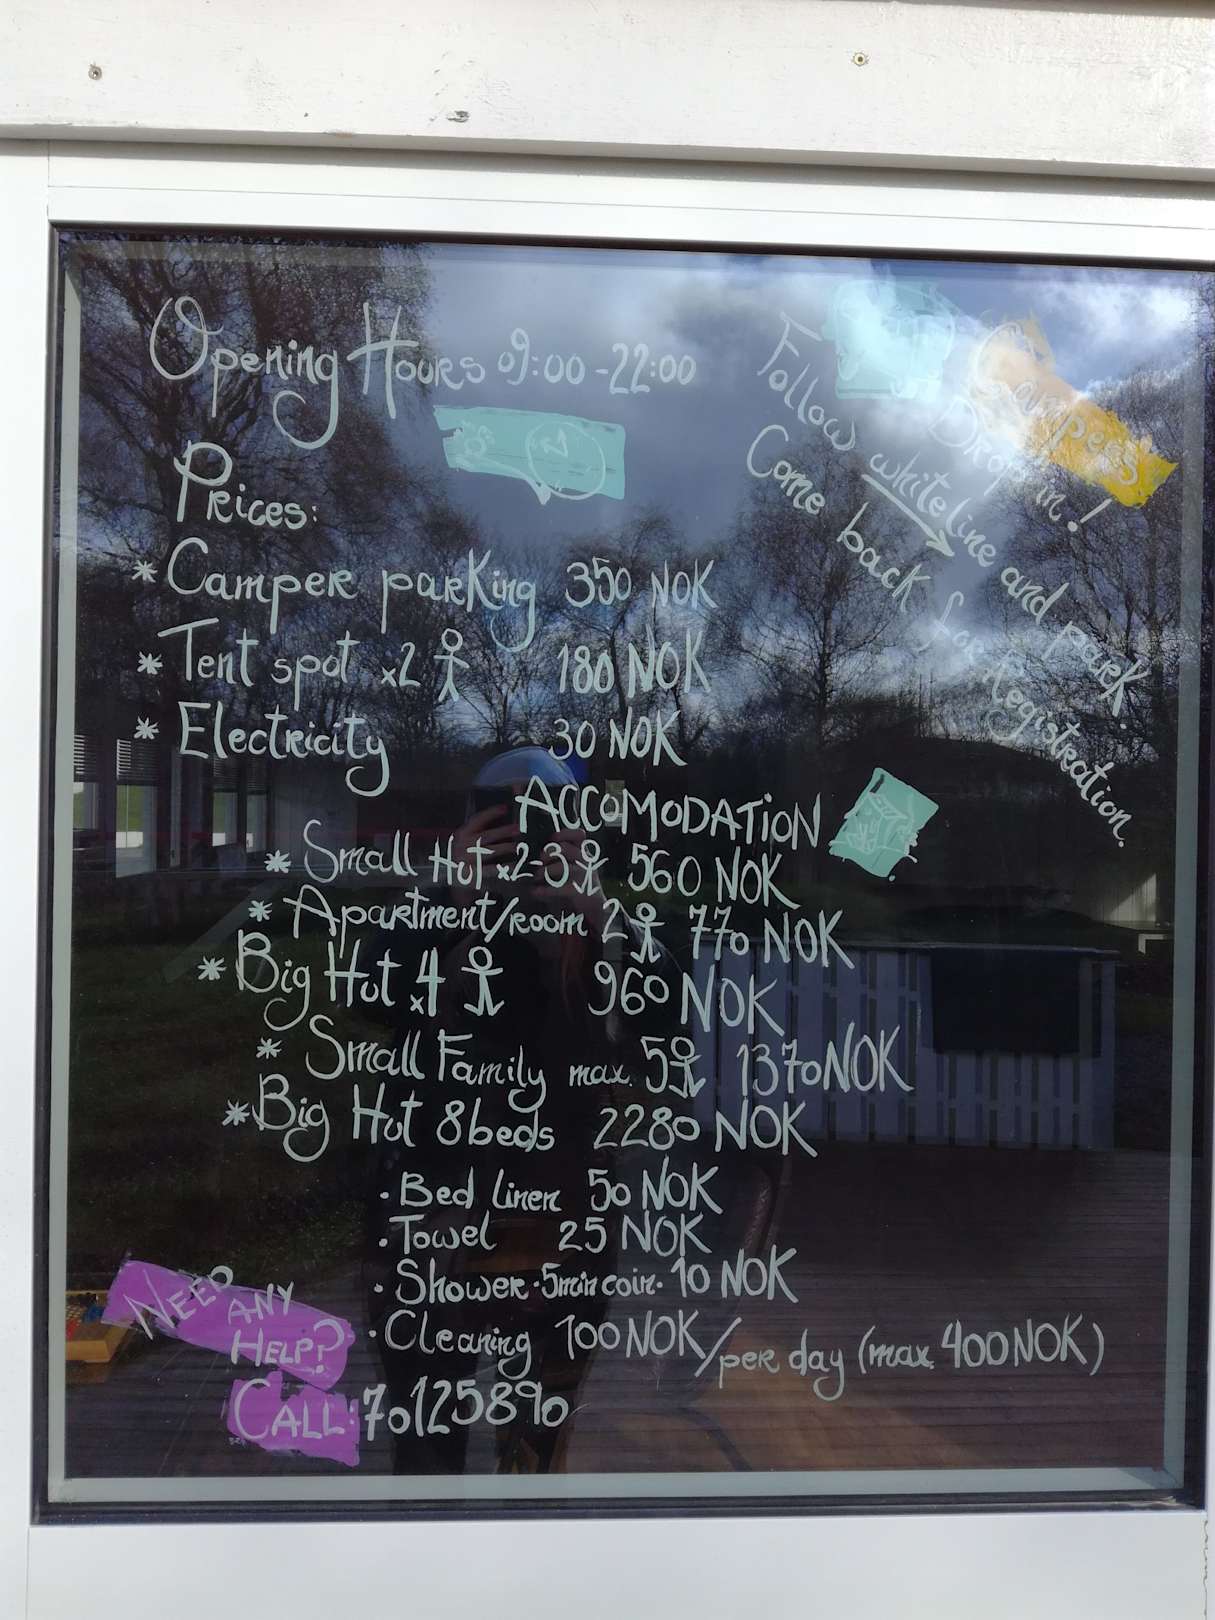 Opening Hours 09:00-22:00
Prices:
* Camper parking 350 NOK
* Tent spot x2 180 NOK
* Electricity 30 NOK
ACCOMODATION
* Small Hut x2-3 560 NOK
* Apartment/room 2 770 NOK
* Big Hut x4 960 NOK
* Small Family max. 5 1370 NOK
* Big Hut 8 beds 2280 NOK
· Bed linen 50 NOK
· Towel 25 NOK
· Shower · 5min coin · 10 NOK
· Cleaning 100 NOK/per day (max. 400 NOK)
NEED
ANY
HELP?
CALL: 70125890
Campers
Drop in!
Follow white line and park.
Come back for Registration.